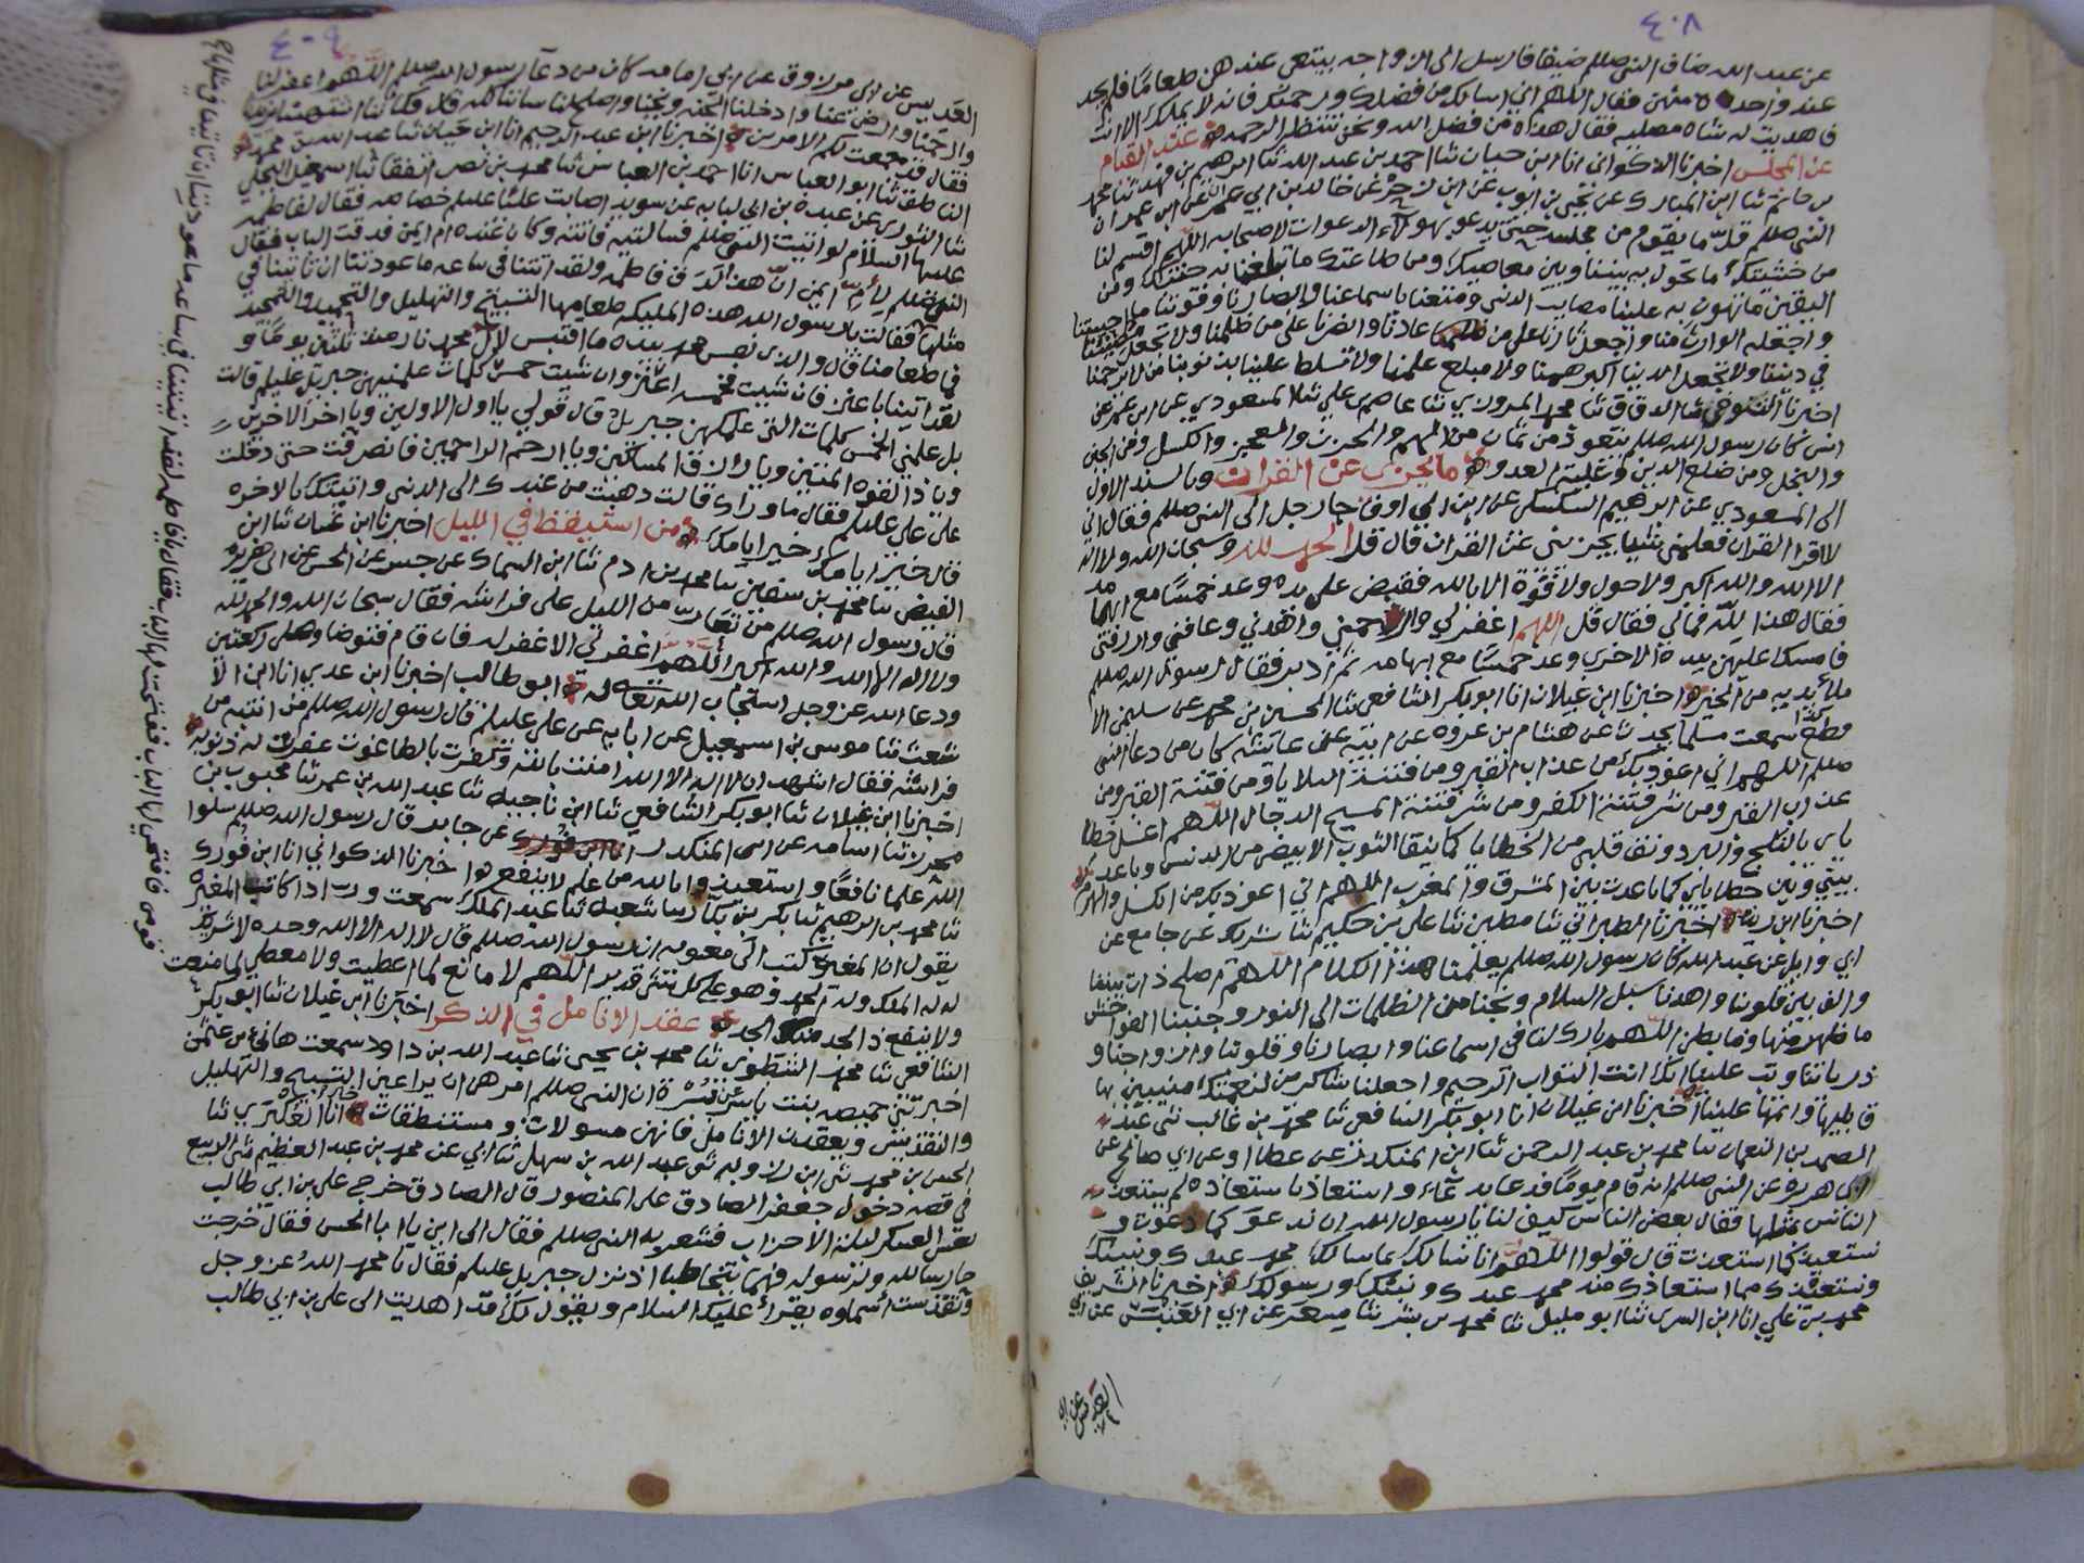 ٤٠٨
عن عبد الله ضاف النبي صللم ضيفا فارسل الى ازواجه يبتغي عندهن طعامًا فلم يجد
عند واحدة منهن فقال اللهم اني اسالك من فضلك ورحمتك فانه لا يملكها الا انت
فاهديت له شاه مصليه فقال هذه من فضل الله ونحن ننتظر الرحمه عند القيام
عن المجلس اخبرنا الذكواني انا ابن حيان ثنا احمد بن عبد الله ثنا ابرهيم بن فهد ثنا محمد
بن حاتم ثنا ابن المبارك عن يحيى بن ايوب عن ابن زحر عن خالد بن ابي عمران عن ابن عمر ان
النبي صللم قلّ ما يقوم من مجلس حتى يدعو بهولاء الدعوات لاصحابه اللهم اقسم لنا
من خشيتك ما تحول به بيننا وبين معاصيك ومن طاعتك ما تبلغنا به جنتك ومن
اليقين ما تهون به علينا مصايب الدنيا ومتعنا باسماعنا وابصارنا وقوتنا ما احييتنا
واجعله الوارث منا واجعل ثارنا على من عادانا وانصرنا على من ظلمنا ولا تجعل مصيبتنا
في ديننا ولا تجعل الدنيا اكبر همنا ولا مبلغ علمنا ولا تسلط علينا بذنوبنا من لا يرحمنا
اخبرنا التنوخي ثنا الدقاق ثنا محمد المروزي ثنا عاصم بن علي ثنا المسعودي عن ابن عمر عن
انس كان رسول الله صللم يتعوذ من ثمان من الهم والحزن والعجز والكسل ومن الجبن
والبخل ومن ضلع الدين وغلبة العدو ما يجزى عن القران وبالسند الاول
الى المسعودي عن ابرهيم السكسكي عن ابن ابي اوفى جا رجل الى النبي صللم فقال اني
لا اقرا القران فعلمني شيا يجزيني عن القران قال قل الحمد لله وسبحان الله ولا اله
الا الله والله اكبر ولا حول ولا قوّة الا بالله فقبض على يده وعد خمسًا مع ابهامه
فقال هذا لله فمالي فقال قل اللهم اغفر لي وارحمني واهدني وعافني وارزقني
فامسك عليهن بيده الاخرى وعد خمسًا مع ابهامه ثم ادبر فقال رسول الله صللم
ملأ يديه من الخير اخبرنا ابن غيلان انا ابو بكر الشافعي ثنا الحسين بن محمد عن سليمن الا
سمعت مسلما يحدثنا عن هشام بن عروه عن ابيه عن عائشه كان من دعا النبي
صللم اللهم اني اعوذ بك من عذاب القبر ومن فتنة القبر ومن
عذاب القبر ومن شر فتنة الكفر ومن شر فتنة المسيح الدجال اللهم اغسل خطا
ياي بالثلج والبرد ونق قلبي من الخطايا كما ينقا الثوب الابيض من الدنس وباعد
بيني وبين خطاياي كما باعدت بين المشرق والمغرب اللهم اني اعوذ بك من الكسل والهرم
اخبرنا ابن ريذه اخبرنا الطبراني ثنا مطين ثنا علي بن حكيم ثنا شريك عن جامع عن
ابي وايل عن عبد الله كان رسول الله صللم يعلمنا هذا الكلام اللهم اصلح ذات بيننا
والف بين قلوبنا واهدنا سبل السلام ونجنا من الظلمات الى النور وجنبنا الفواحش
ما ظهر منها وما بطن اللهم بارك لنا في اسماعنا وابصارنا وقلوبنا وازواجنا و
ذرياتنا وتب علينا انك انت التواب الرحيم واجعلنا شاكرين لنعمتك مثنيين بها
قابليها واتمها علينا اخبرنا ابن غيلان انا ابو بكر الشافعي ثنا محمد بن غالب ثنى عبد
الصمد بن النعمان ثنا محمد بن عبد الرحمن ثنا ابن المنكدر عن عطا او عن ابي صالح عن
ابي هريره عن النبي صللم انه قام يومًا فدعا بدعاء واستعاذ باستعاذه لم يستعذ
الناس مثلها فقال بعض الناس كيف لنا يا رسول الله ان ندعو كما دعوت و
نستعيذ كما استعذت قال قولوا اللهم انا نسالك بما سالك محمد عبدك ونبيك
ونستعيذك مما استعاذك منه محمد عبدك ونبيك ورسولك اخبرنا الشريف
محمد بن علي انا ابن السري ثنا ابو مليل ثنا محمد بن بشر ثنا مسعر عن ابي العنبس عن ابي
العدبس عن ابي
٤٠٩
العدبس عن ابي مرزوق عن ابي امامه كان من دعآ رسول الله صللم اللهم اغفر لنا
وارحمنا وارض عنا وادخلنا الجنه ونجنا واصلح لنا شاننا كله قال فكاننا اشتهينا
فقال قد جمعت لكم الامر اخبرنا ابن عبد الرحيم انا ابن حيان ثنا عبد الله بن محمد
الناطقي ثنا ابو العباس انا احمد بن العباس ثنا محمد بن نصر ثنا اسمعيل البجلي
ثنا الثوري عن عبدة بن ابي لبابه عن سويد اصابت عليًا عليلم خصاصه فقال لفاطمه
عليها السلام لو اتيت النبي صللم فسالتيه فاتته وكان عنده ام ايمن فدقت الباب فقال
النبي صللم لأمّ ايمن انّ هذا لدق فاطمه ولقد اتتنا في ساعه ما عودتنا ان تاتينا في
مثلها فقالت يا رسول الله هذه المليكه طعامها التسبيح والتهليل والتحميد والتمجيد
فما طعامنا قال والذي نفس محمد بيده ما اقتبس لال محمد نار منذ ثلثين يومًا و
لقد اتينا باعنز فان شيت خمسه اعنز وان شيت خمس كلمات علمنيهن جبريل عليلم قالت
بل علمني الخمس كلمات التي علمكهن جبريل قال قولي يا اول الاولين ويا اخر الاخرين
ويا ذا القوه المتين ويا رازق المساكين ويا ارحم الراحمين فانصرفت حتى دخلت
على علي عليلم فقال ما وراك قالت ذهبت من عندك الى الدنيا واتيتك بالاخره
قال خير ايامك خير ايامك من استيقظ في الليل اخبرنا ابن غسان ثنا ابن
الفيض ثنا محمد بن سفين ثنا محمد بن ادم ثنا ابن السماك عن جسر عن الحسن عن ابي هريره
قال رسول الله صللم من تعار من الليل على فراشه فقال سبحان الله والحمد لله
ولا اله الا الله والله اكبر اللهم اغفر لي الا غفر له فان قام فتوضا وصلى ركعتين
ودعا الله عز وجل استجاب الله تعالى له ابو طالب اخبرنا ابن عدي انا ابن الا
شعث ثنا موسى بن اسمعيل عن ابايه عن علي عليلم قال رسول الله صللم من انتبه من
فراشه فقال اشهد ان لا اله الا الله امنت بالله وكفرت بالطاغوت غفرت له ذنوبه
اخبرنا ابن غيلان ثنا ابو بكر الشافعي ثنا ابن ناجيه ثنا عبد الله بن عمر ثنا محبوب بن
محرز ثنا اسامه عن ابن المنكدر عن جابر قال رسول الله صللم سلوا
الله علما نافعًا واستعيذوا بالله من علم لا ينفع اخبرنا الذكواني انا ابن فورك
ثنا محمد بن ابرهيم ثنا بكر بن بكار ثنا شعبه ثنا عبد الملك سمعت ورادا كاتب المغيره
يقول ان المغيره كتب الى معويه ان رسول الله صللم قال لا اله الا الله وحده لا شريك
له له الملك وله الحمد وهو على كل شئ قدير اللهم لا مانع لما اعطيت ولا معطي لما منعت
ولا ينفع ذا الجد منك الجد عقد الانامل في الذكر اخبرنا ابن غيلان ثنا ابو بكر
الشافعي ثنا محمد الشطوي ثنا محمد بن يحيى ثنا عبد الله بن داود سمعت هانئ بن عثمن
اخبرتني حميصه بنت ياسر عن يسرة ان النبي صللم امرهن ان يراعين التسبيح والتهليل
والتقديس ويعقدن الانامل فانهن مسولات ومستنطقات انا العسكري ثنا
الحسن بن محمد ثنى ابن رزويه ثنى عبد الله بن سهل ثنا ابي عن محمد بن عبد العظيم ثنى الربيع
في قصه دخول جعفر الصادق على المنصور قال الصادق خرج علي بن ابي طالب
يعس العسكر ليلة الاحزاب فشعر به النبي صللم فقال الى اين يا ابا الحسن فقال خرجت
حارسا لله ولرسوله فهما يتخاطبا اذ نزل جبريل عليلم فقال يا محمد اللهُ عز وجل
وتقدست أسماوه يقرأ عليك السلام ويقول لك قد اهديت الى علي بن ابي طالب
قومي فافتحي لها الباب ففتحت لها الباب فقال يا فاطمه لقد اتيتينا في ساعه ما عودتينا ان تاتينا في مثلها